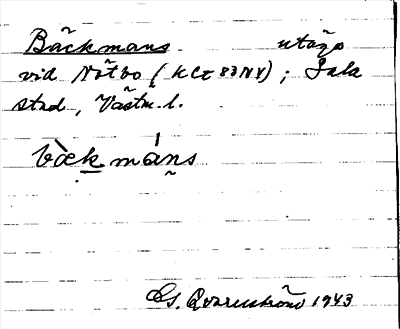 Bäckmans utägo
vid Nötbo (KCE 83NV); Sala
stad, Västm. l.
bœ̀km̀áns
Gs. Qvarnström 1943